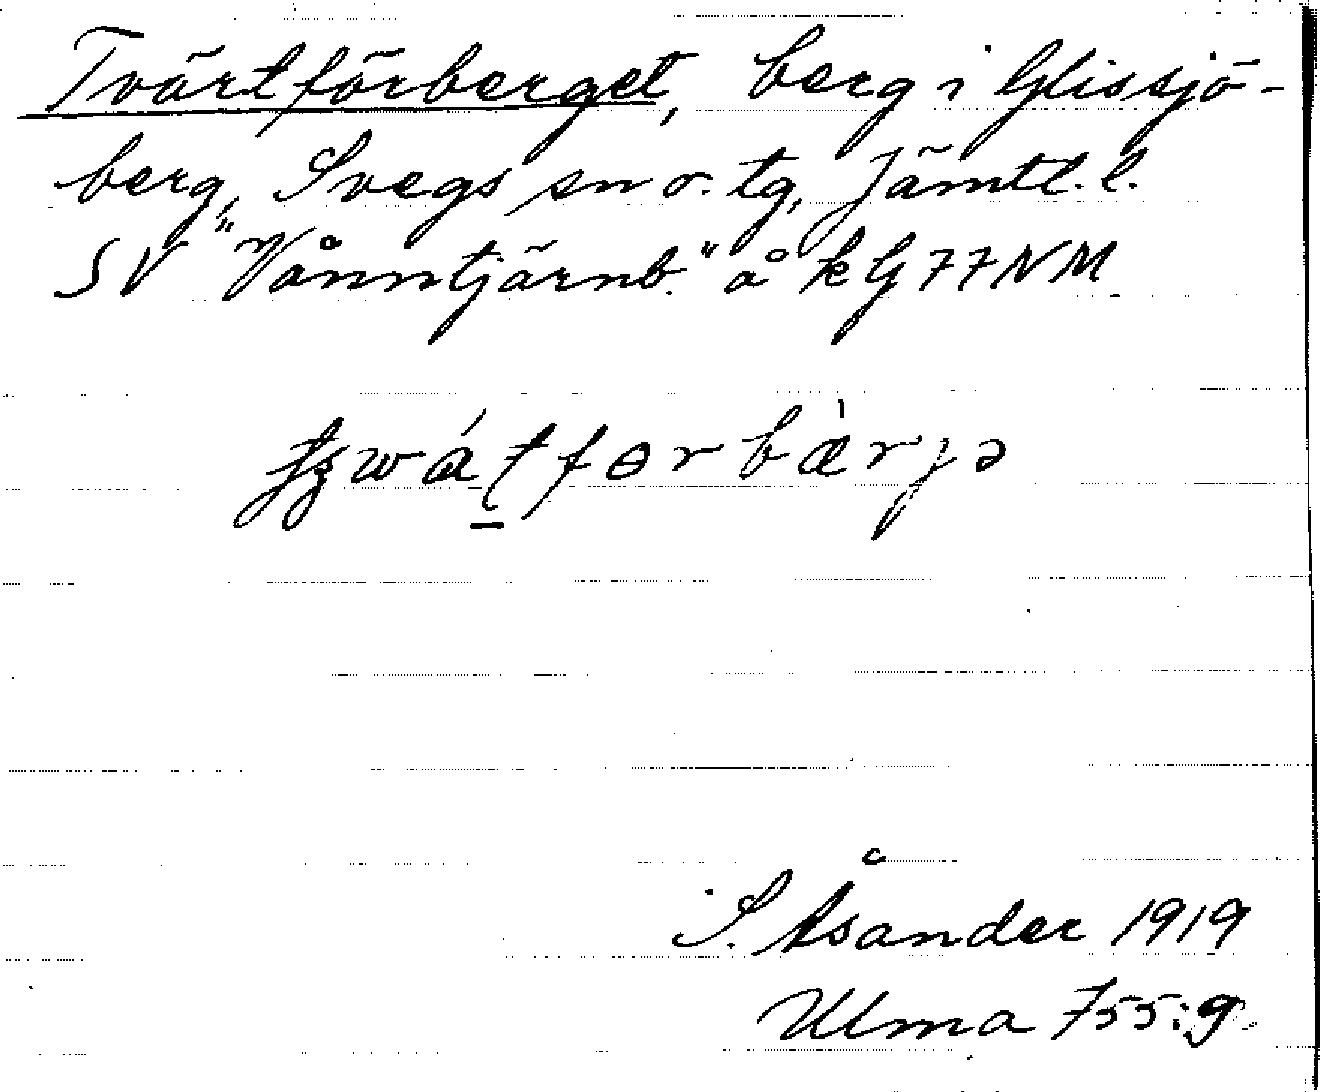 Tvärtförberget, berg i Glissjö-
berg, Svegs sn o. tg, Jämtl. l.
SV "Vånntjärnb." å k G 77 NM
S. Åsander 1919
Ulma 755:9.